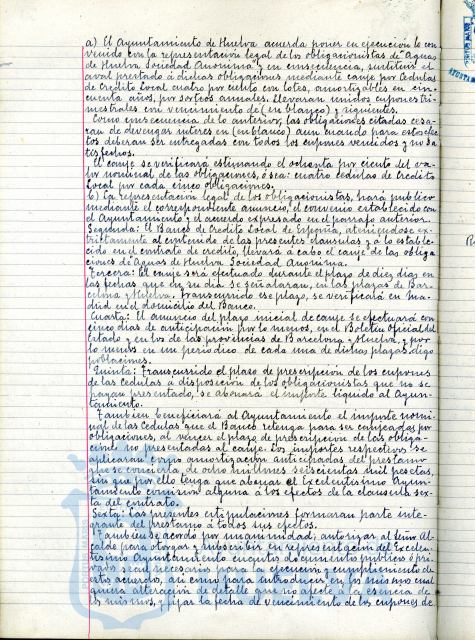 a) El Ayuntamiento de Huelva acuerda poner en ejecucion lo con
venido con la representacion legal de los obligacionistas de "Aguas
de Huelva Sociedad Anonima" y en consecuencia, sustituir el
aval prestado á dichas obligaciones mediante canje por Cedulas
de Credito Local cuatro por ciento con lotes, amortizables en cin-
cuenta años, por sorteos anuales. Llevaran unidos cupones tri-
mestrales con vencimiento de (en blanco) y siguientes.
Como consecuencia de lo anterior, las obligaciones citadas cesa-
ran de devengar interes en (en blanco) aun cuando para estos efec
tos deberan ser entregadas con todos los cupones vencidos y no sa
tisfechos.
El canje se verificará estimando el ochenta por ciento del va-
lor nominal de las obligaciones, ó sea: cuatro cedulas de Credito
Local por cada cinco obligaciones.
b) La representacion legal de los obligacionistas, hará publico
mediante el correspondiente anuncio, el convenio establecido con
el Ayuntamiento y el acuerdo expresado en el parrafo anterior.
Segunda: El Banco de Credito Local de España, ateniendose es-
trictamente al contenido de las presentes clausulas y á lo estable-
cido en el contrato de credito, llevará á cabo el canje de las obliga
ciones de Aguas de Huelva Sociedad Anonima.
Tercera: El canje será efectuado durante el plazo de diez dias en
las fechas que en su dia se señalaran, en las plazas de Bar-
celona y Huelva. Transcurrido ese plazo, se verificará en Ma-
drid en el domicilio del Banco.
Cuarta: El anuncio del plazo inicial de canje se efectuará con
cinco dias de anticipacion por lo menos, en el Boletin Oficial del
Estado y en los de las provincias de Barcelona y Huelva, y por
lo menos en un periodico de cada una de dichas plazas digo
poblaciones.
Quinta: Transcurrido el plazo de prescripcion de los cupones
de las cedulas á disposicion de los obligacionistas que no se
hayan presentado, se abonará el importe liquido al Ayun-
tamiento.
Tambien beneficiará al Ayuntamiento el importe nomi-
nal de las Cedulas que el Banco retenga para ser canjeadas por
obligaciones, al vencer el plazo de prescripcion de las obliga-
ciones no presentadas al canje. Los importes respectivos se
aplicaran como amortizacion anticipada del prestamo
que se concierta, de ocho millones seiscientas mil pesetas,
sin que por ello tenga que abonar el Excelentisimo Ayun-
tamiento comision alguna á los efectos de la clausula sex-
ta del contrato.
Sexta: Las presentes estipulaciones formaran parte inte-
grante del prestamo á todos sus efectos.
Tambien se acordo por unanimidad, autorizar al Señor Al-
calde para otorgar y subscribir en representacion del Excelen-
tisimo Ayuntamiento cuantos documentos publicos ó pri-
vados sean necesarios para la ejecucion y cumplimiento de
estos acuerdos, asi como para introducir en los mismos cual
quiera alteracion de detalle que no afecte á la esencia de
los mismos, y fijar la fecha de vencimiento de los cupones de